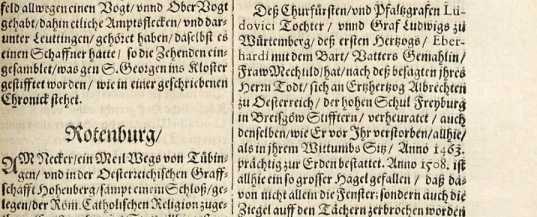 feld allwegen einen Vogt/ vnnd Ober Vogt
gehabt/ dahin etliche Amptsflecken/ vnd dar-
unter Leuttingen/ gehöret haben/ daselbst es
einen Schaffner hatte/ so die Zehenden ein-
gesamblet/ was gen S. Georgen ins Kloster
gestifftet worden/ wie in einer geschriebenen
Chronick stehet.
Rotenburg/
AM Necker/ ein Meil Wegs von Tübin-
gen/ vnd in der Oesterreichischen Graff-
schafft Hohenberg/ sampt einem Schloß/ ge-
legen/ der Röm. Catholischen Religion zuge-
Deß Churfürsten/ vnd Pfaltzgrafen Lu-
dovici Tochter/ vnnd Graf Ludwigs zu
Würtemberg/ deß ersten Hertzogs/ Eber-
hardi mit dem Bart/ Vatters Gemahlin/
Fraw Mechtild/ hat/ nach deß besagten jhres
Herrn Todt/ sich an Ertzhertzog Albrechten
zu Oesterreich/ der hohen Schul Freyburg
in Breißgöw Stifftern/ verheuratet/ auch
denselben/ wie Er vor Jhr verstorben/ allhie/
als in jhrem Wittumbs Sitz/ Anno 1463.
prächtig zur Erden bestattet. Anno 1508. ist
allhie ein so grosser Hagel gefallen/ daß da-
von nicht allein die Fenster: sondern auch die
Ziegel auff den Tächern zerbrochen worden